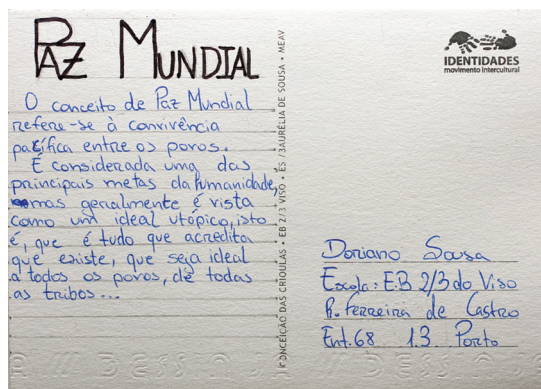 PAZ MUNDIAL
O conceito de Paz Mundial
refere-se à convivência
pacífica entre os povos.
É considerada uma das
principais metas da humanidade,
mas geralmente é vista
como um ideal utópico, isto
é, que é tudo que acredita
que existe, que seja ideal
a todos os povos, de todas
as tribos...
CONCEIÇÃO DAS CRIOULAS • EB 2/3 VISO • ES /3AURÉLIA DE SOUSA • MEAV
IDENTIDADES
movimento intercultural
Doriano Sousa
Escola: E.B 2/3 do Viso
R. Ferreira de Castro
Ent. 68 1.3 Porto